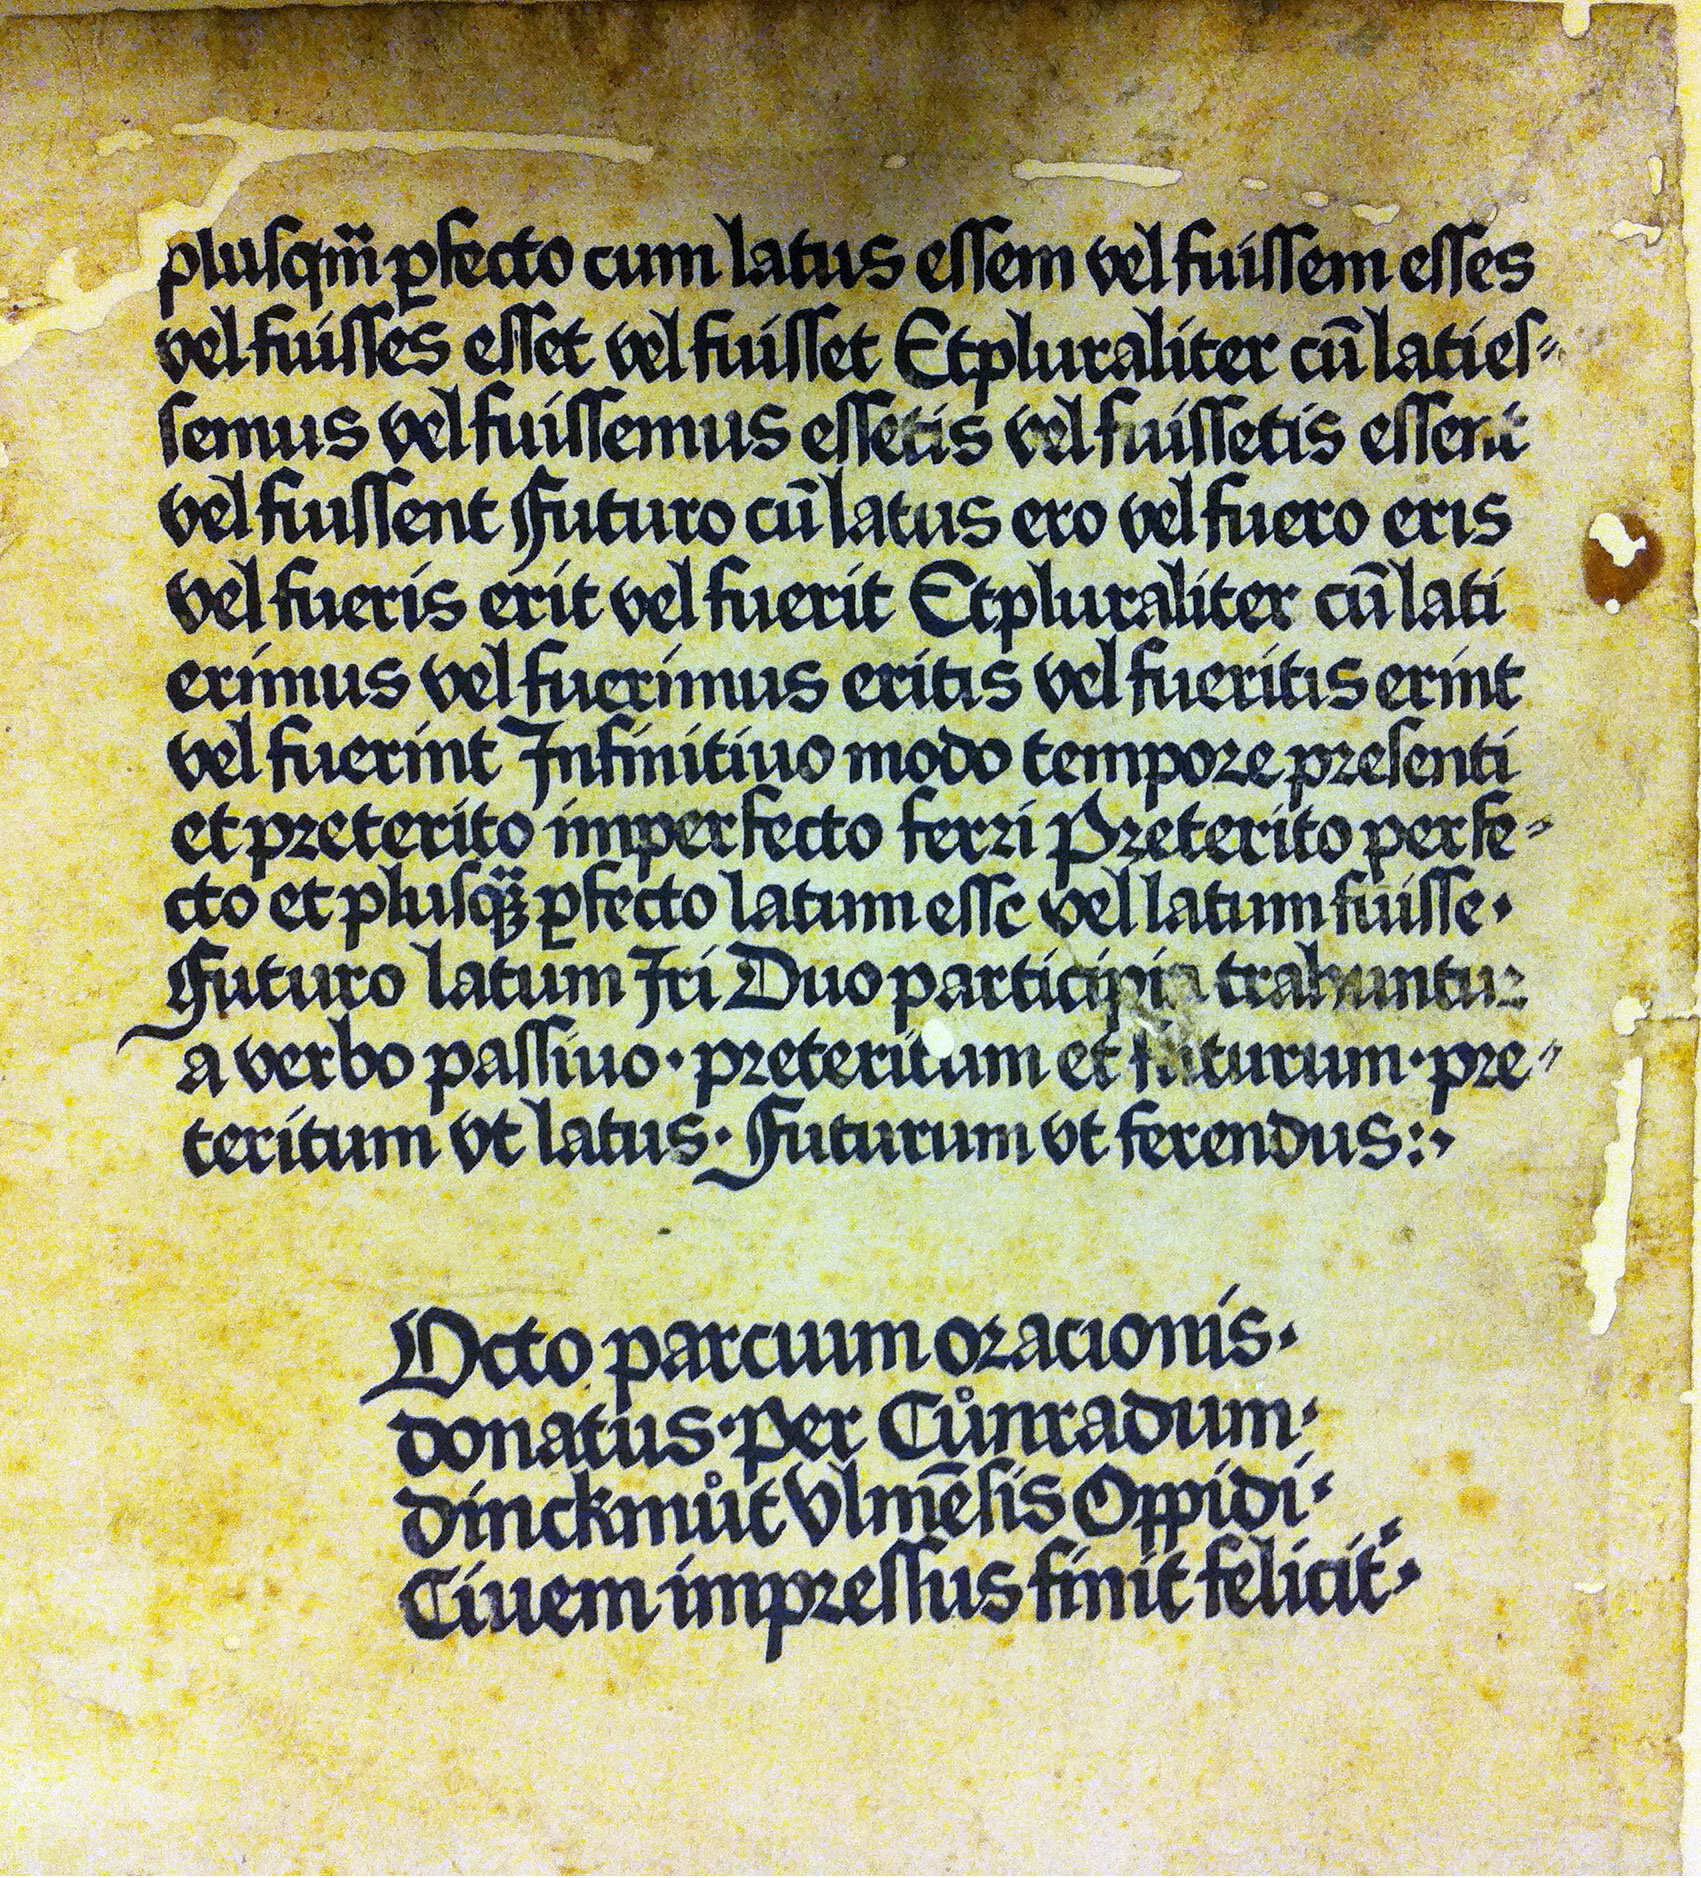 pluſqm̃ ꝑfecto cum latus eſſem vel fuiſſem eſſes
vel fuiſſes eſſet vel fuiſſet Et pluraliter cū latieſ⸗
ſemus vel fuiſſemus eſſetis vel fuiſſetis eſſent
vel fuiſſent Futuro cū latus ero vel fuero eris
vel fueris erit vel fuerit Et pluraliter cū lati
erimus vel fuerimus eritis vel fueritis erint
vel fuerint Infinitiuo modo tempoꝛe pꝛeſenti
et pꝛeterito imperfecto ferꝛi Pꝛeterito perfe⸗
cto et pluſqꝫ̈ ꝑfecto latum eſſe vel latum fuiſſe·
Futuro latum Iri Duo participia trahuntuꝛ
a verbo paſſiuo· pꝛeteritum et futurum· pꝛe⸗
teritum vt latus· Futurum vt ferendus:·
Octo parcium oꝛacionis·
donatus· per Cůnradum·
dinckmůt Vlmēſis Oppidi·
Ciuem impꝛeſſus finit felicit᷑·